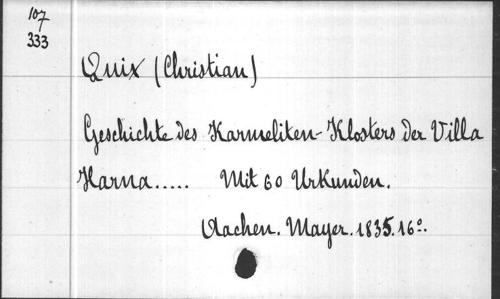 107
333
Quix (Christian)
Geschichte des Karmeliten-Klosters der Villa
Harna..... Mit 60 Urkunden.
Aachen. Mayer. 1835. 16°.